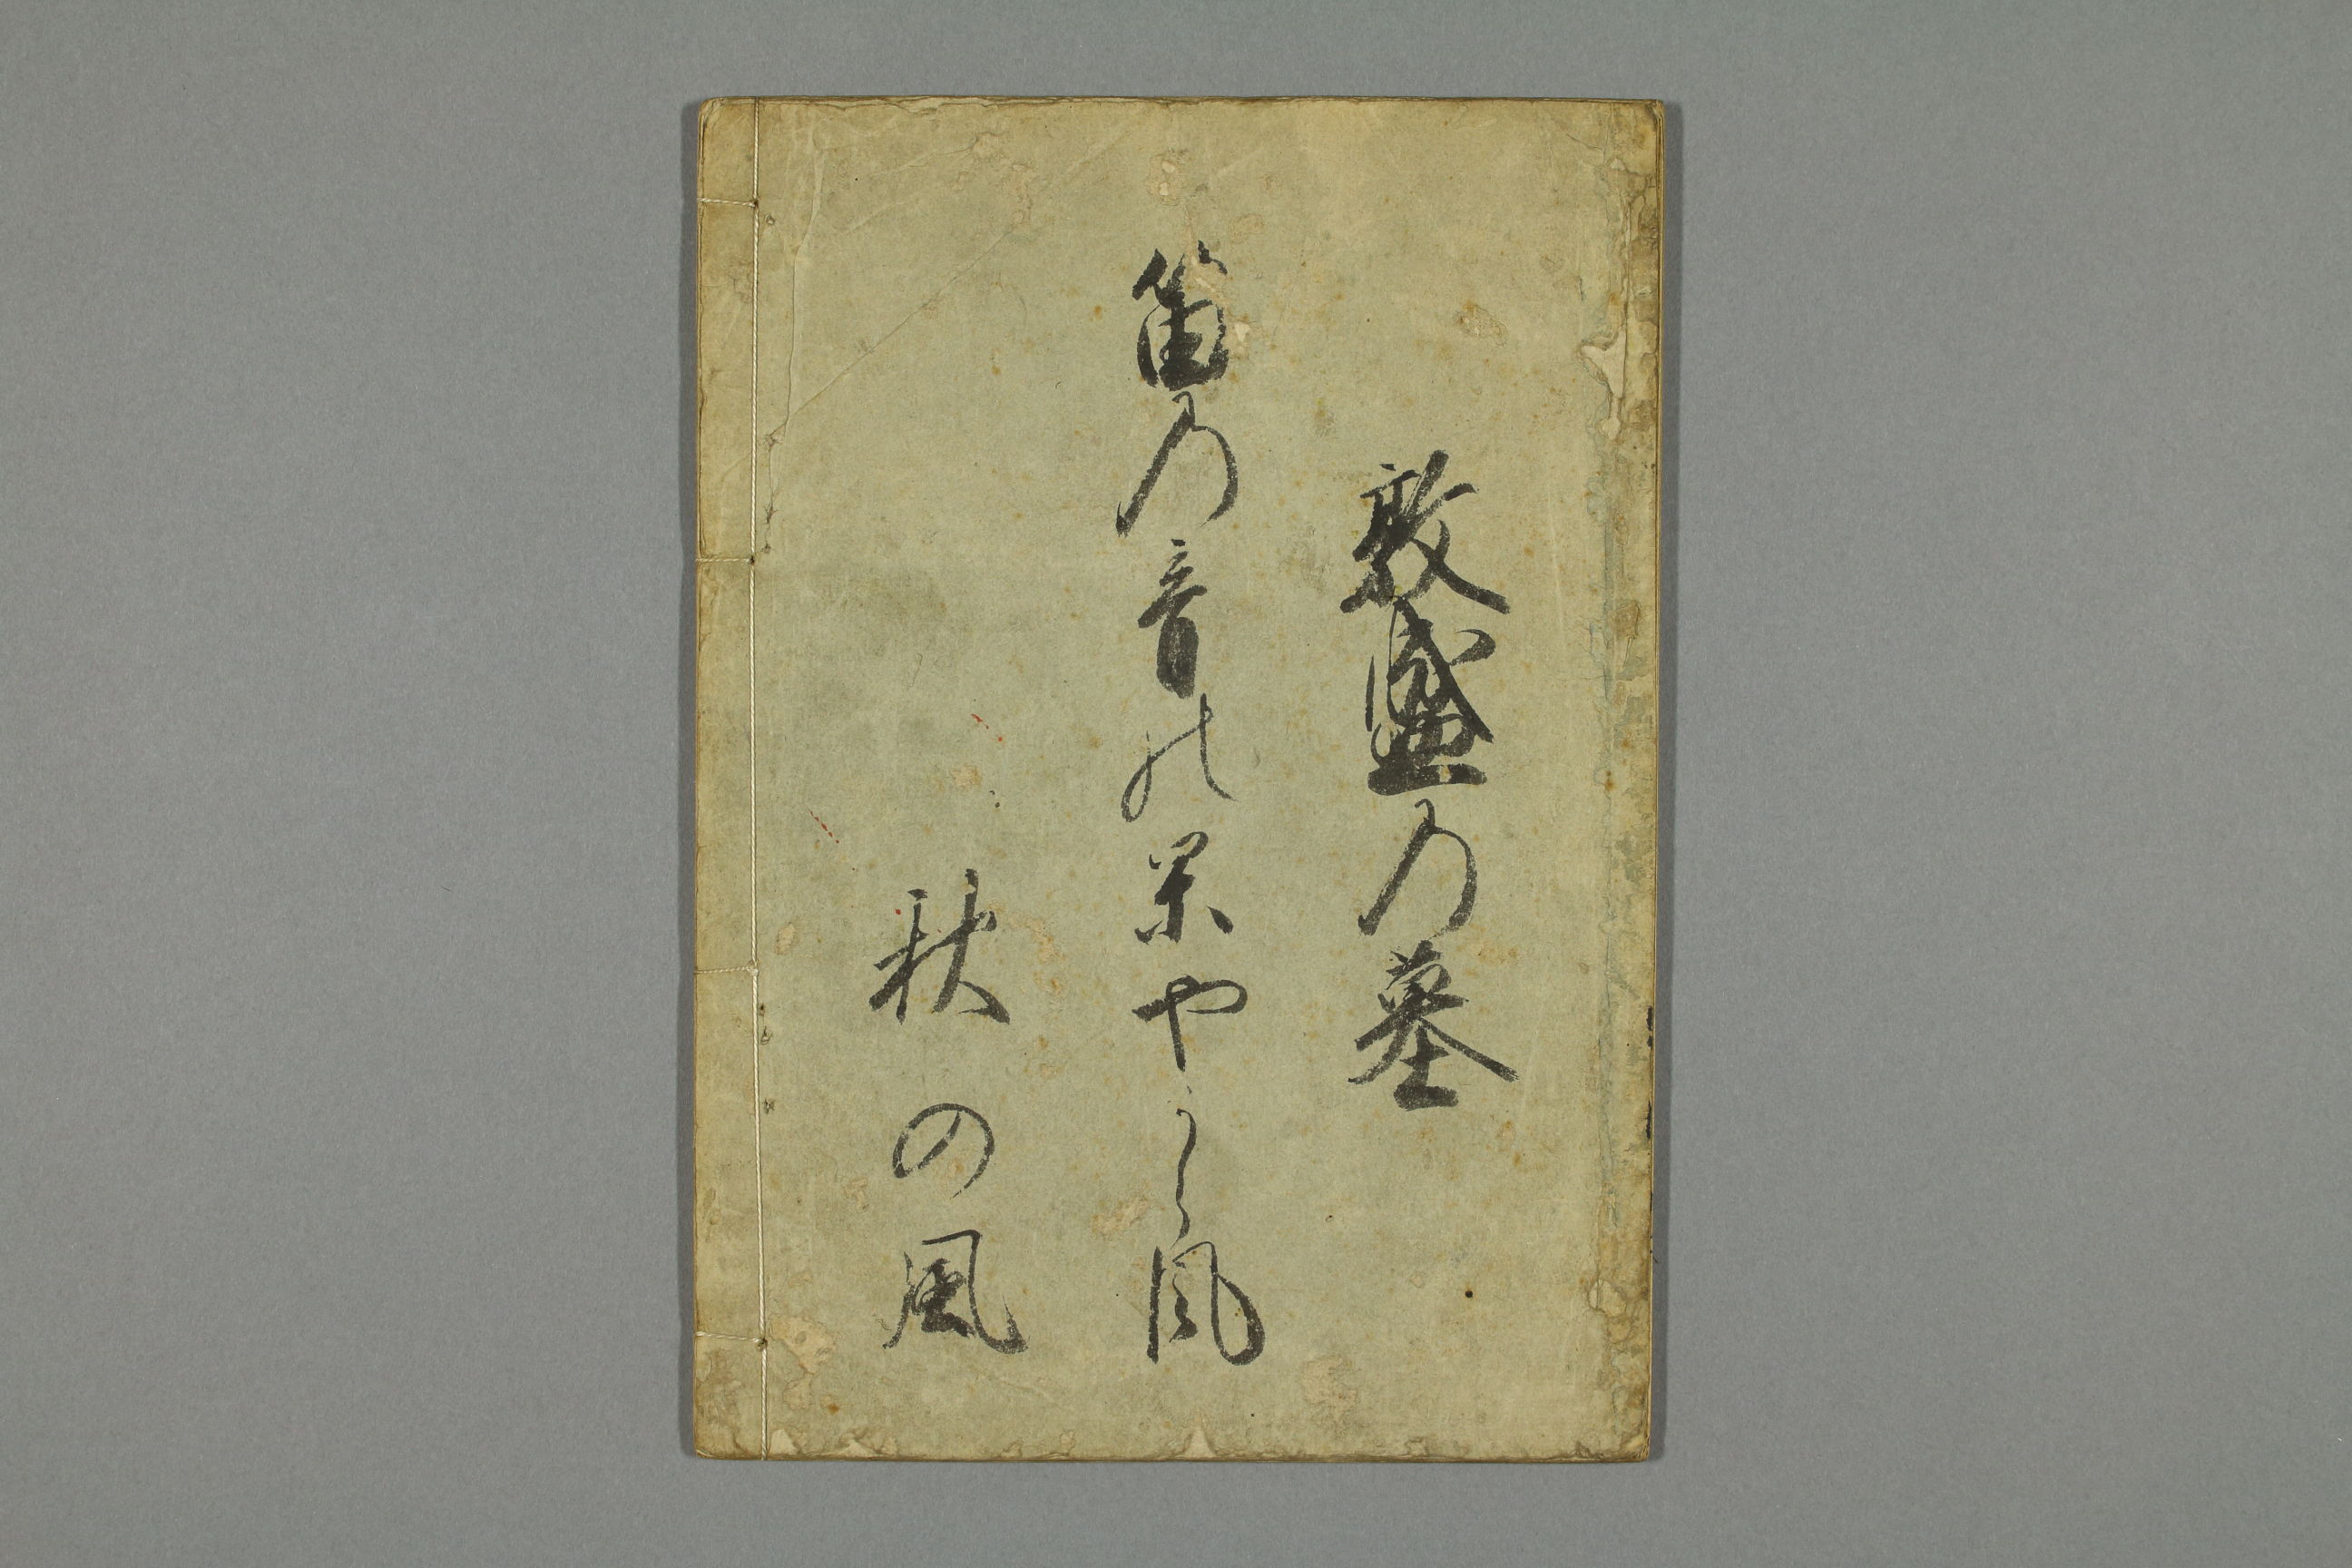 敦盛乃墓
笛乃音の果やうら風
秋の風